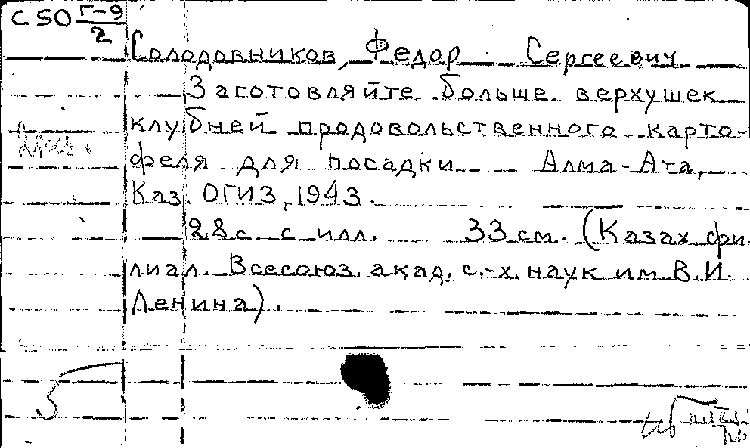 С 50 Г-9
2
Солодовников, Федор Сергеевич
Заготовляйте больше верхушек
клубней продовольственного карто-
феля для посадки Алма-Ата,
Каз. ОГИЗ, 1943.
28 с. с илл. 33 см. (Казах. фи-
лиал. Всесоюз. акад. с.-х. наук им. В.И.
Ленина).